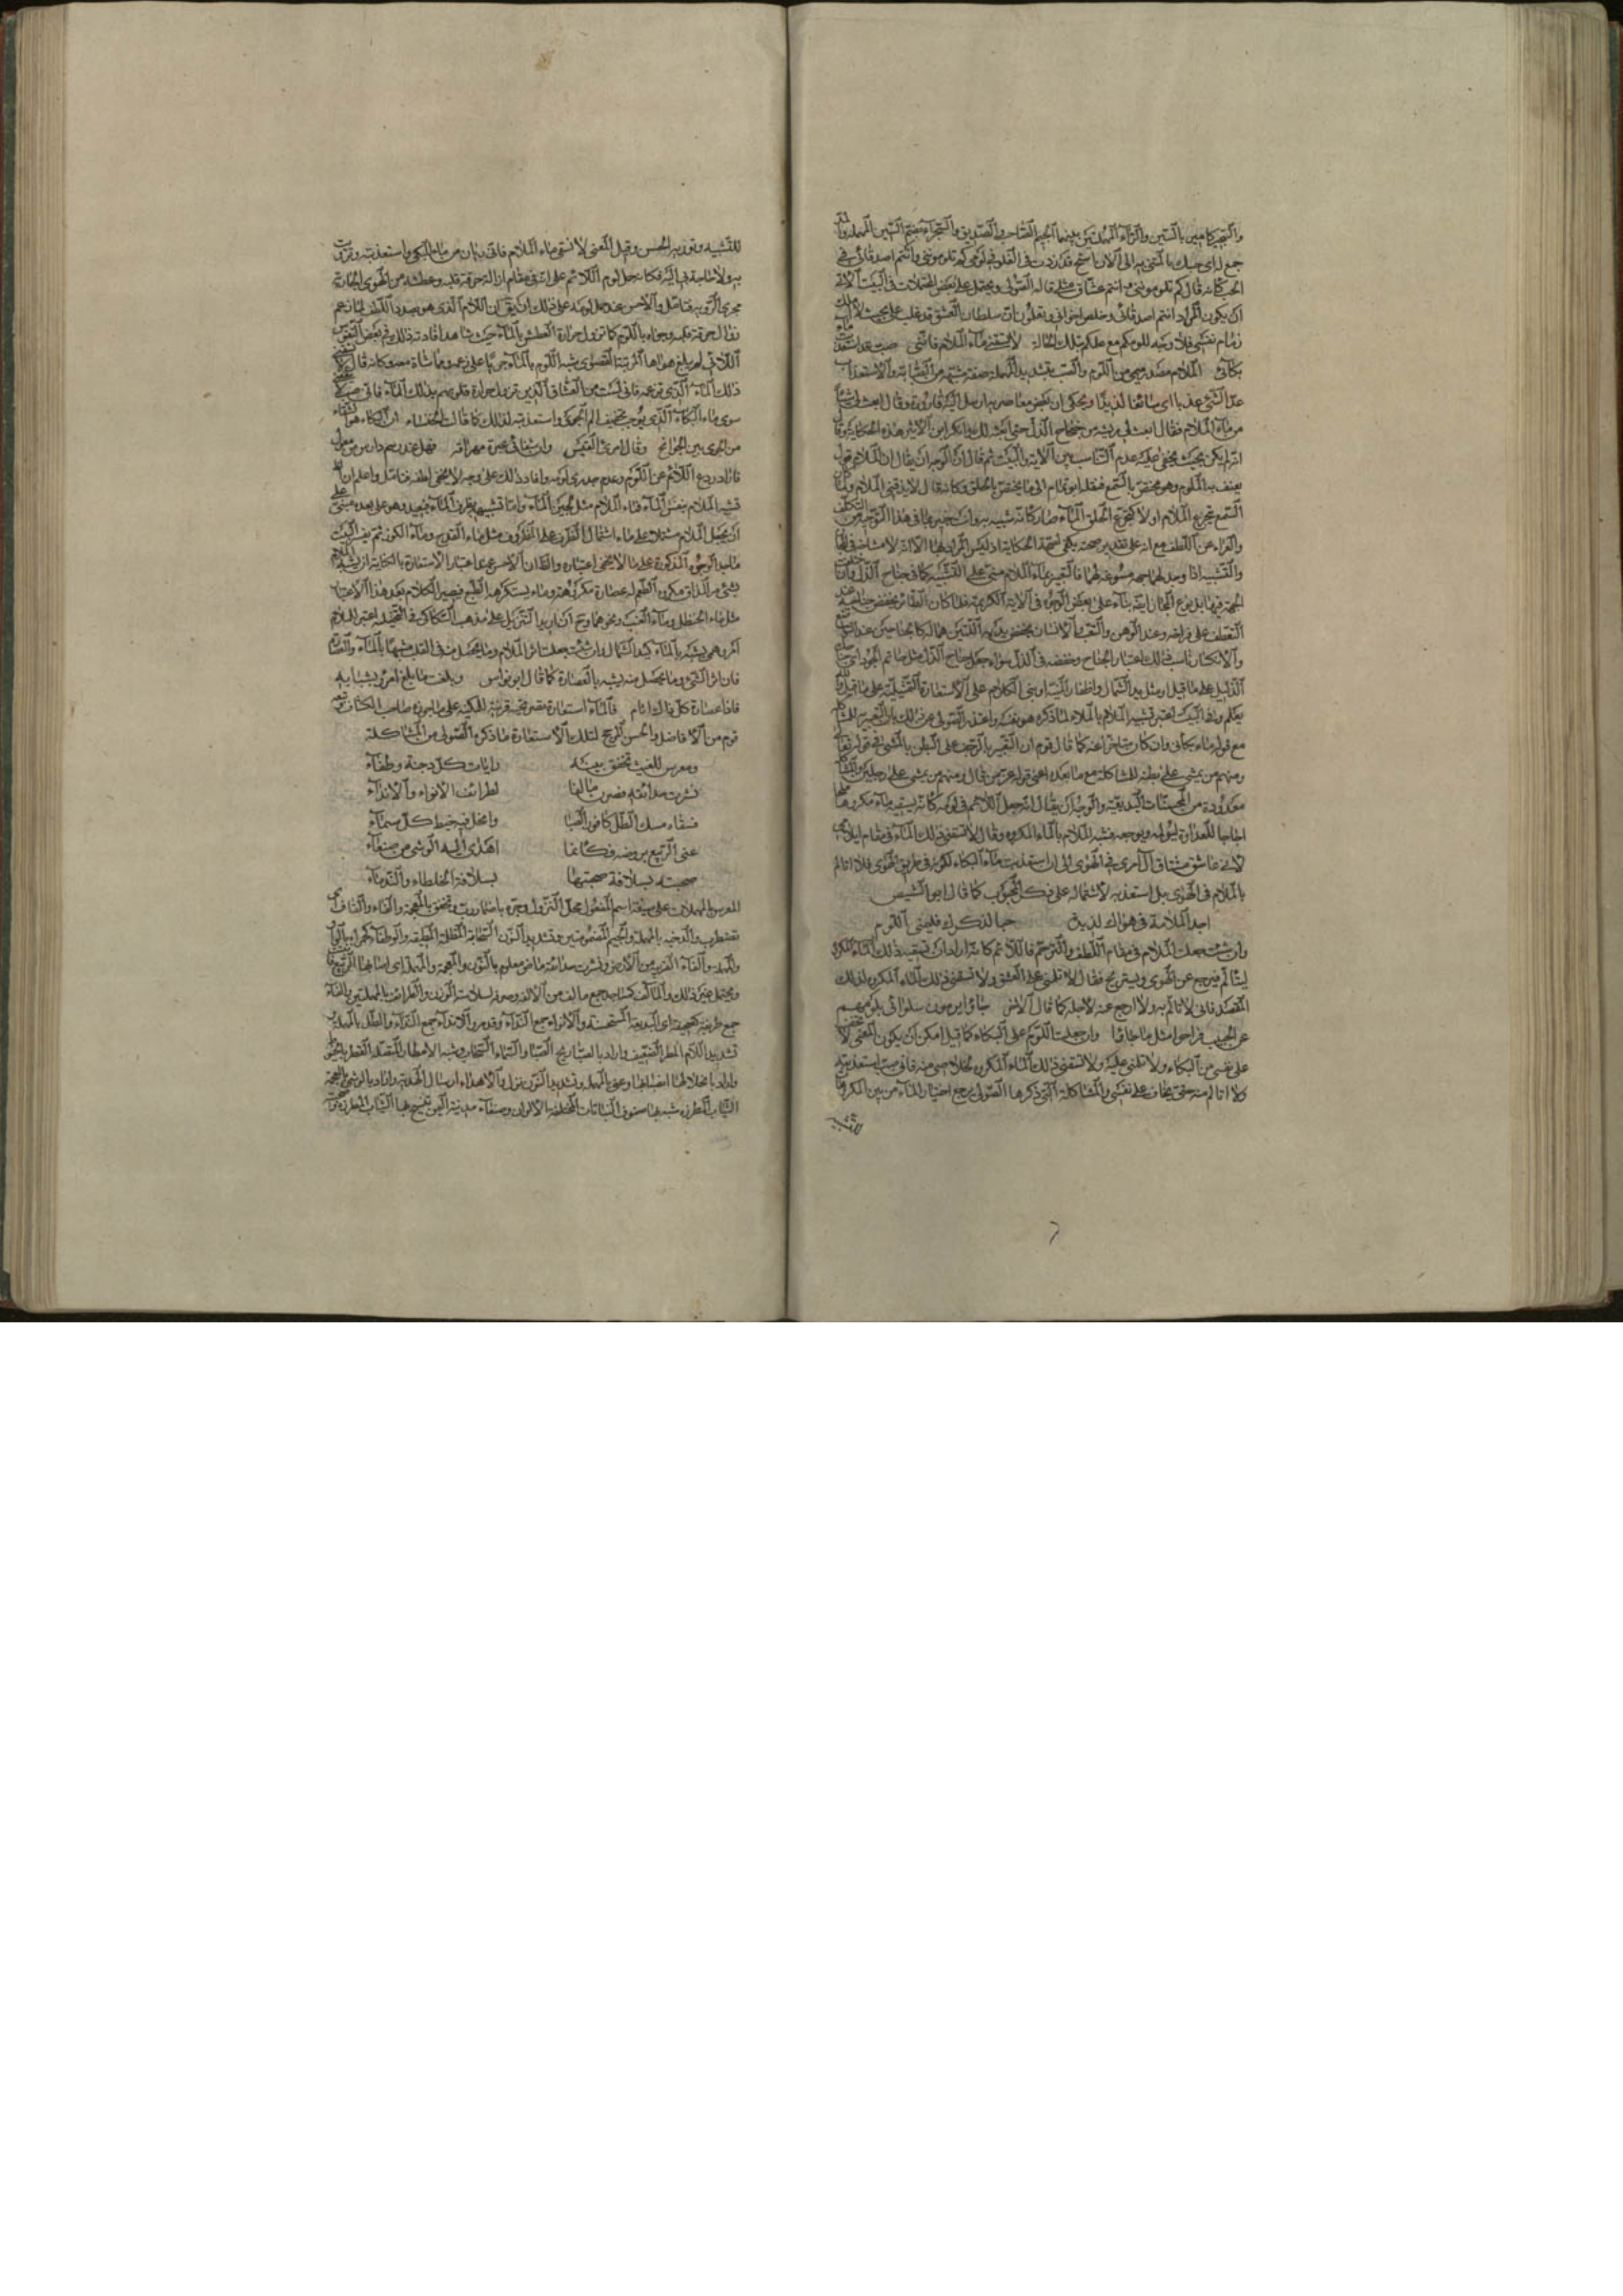 والسجير كامير بالسين والراء المهملتين بينهما الجيم الصاحب والصديق والسجراء بضم السين المهملة
جمع له اى حسبك يا متنبه الى الآن قد زدت فى الغلو فى لومى كم تلوموننى وانتم اصدقائى فى
الحب كانه قال كم تلوموننى وانتم عشاق مثلى قاله الصولى ويحتمل على بعض المحتملات فى البيت الآتى
ان يكون المراد انتم اصدقائى وخلص اخوانى وتعلمون ان سلطان العشق قد غلب على بحيث لا املك
زمام نفسى فلا وجه للومكم مع علمكم بتلك الحالة لا تسقنى ماء الملام فاننى صب قد استعذبت ماء
بكائى الملام مصدر ميمى من اللوم والصب بتشديد المهملة صفة مشبهة من الصبابة والاستعذاب
عد الشئ عذبا اى سائغا لذيذا ويحكى ان بعض معاصريه ارسل اليه قارورة وقال ابعث لى شيئا
من ماء الملام فقال ابعث لى ريشة من جناح الذل حتى ابعثه لك وانكر ابن الاثير هذه الحكاية وقال
انه لم يكن بحيث يخفى عليه عدم التناسب بين الآية والبيت ثم قال ان الوجه ان يقال ان الملام قول
يعنف به الملوم وهو مختص بالسمع فنقله ابو تمام الى ما يختص بالحلق وكانه قال لا تذقنى الملام ولما كان
السمع يتجرع الملام اولا كتجرع الحلق الماء صار كانه شبيه به وانت خبير بما فى هذا التوجيه من التكلف
والعراء عن اللطف مع انه على تقدير صحته يكفى لصحة الحكاية اذ ليس المراد بها الا انه لا مشابهة فى
والتشبيه اذا وجد لهما جهة مسوغة لهما فالتعبير بماء الملام مبنى على التشبيه كما فى جناح الذل وان
الجهة فيها بل نوع المجاز ايضا بناء على بعض الوجوه فى الآية الكريمة فلما كان الطائر يخفض جناحه عند
التعطف على فراخه وعند الوهن والتعب والانسان يخفض يديه اللتين هما له كالجناحين عند التواضع
والانكسار ناسب ذلك اعتبار الجناح وخفضه فى الذل سواء جعل جناح الذل مثل حاتم الجود اى جناحك
الذليل على ما قيل او مثل يد الشمال واظفار المنية او بنى الكلام على الاستعارة التمثيلية على ما قيل والله
يعلم واما البيت فاعتبر تشبيه الملام بالماء لما ذكره هو نفسه واعتذر الصولى عن ذلك بان التعبير للمشاكلة
مع قوله ماء بكائى وان كان متاخرا عنه كما قال قوم ان التعبير بالزحف على البطن بالمشى فى قوله تعالى
ومنهم من يمشى على بطنه للمشاكلة مع ما بعده اعنى قوله عز من قال ومنهم من يمشى على رجلين والمشاكلة
معدودة من المحسنات البديعية والوجه ان يقال انه جعل اللائم فى لومه كانه يسقيه ماء مكروها ملحا
اجاجا للعداوة ليؤلمه ويوجعه فشبه الملام بالماء المكروه وقال لا تسقنى ذلك الماء فى مقام ايلامى
لانى عاشق مشتاق آل امرى فى الهوى الى ان استعذبت ماء البكاء لكونه فى طريق الهوى فلا اتالم
بالملام فى الهوى بل استعذبه لاشتماله على ذكر المحبوب كما قال ابو الشيص
اجد الملامة فى هواك لذيذة حبا لذكرك فليلمنى اللوم
وان شئت جعلت الملام فى مقام اللطف والترحم فاللائم كانه اراد ان يسقيه ذلك الماء المكروه
ليتالم فيرجع عن الهوى ويستريح فقال لا تلمنى على العشق ولا تسقنى ذلك الماء المكروه لذلك
المقصد فانى لا اتالم به ولا ارجع عنه لاجله كما قال الآخر جاؤا يرومون سلوانى بلومهم
عن الحبيب فراحوا مثل ما جاؤا وان جعلت اللوم على البكاء كما قيل امكن ان يكون المعنى لا تخف
على نفسى من البكاء ولا تلمنى عليه ولا تسقنى ذلك الماء المكروه لخلاصى منه فانى صب استعذبته
ولا اتالم منه حتى يخاف على نفسى والمشاكلة التى ذكرها الصولى يرجع اختيار الماء من بين المكروهات
للتشبيه
للتشبيه وتورثه الحسن وقيل المعنى لا تسقنى ماء الملام فانى ريان من ماء البكى واستعذبته وترويت
به ولا حاجة بى اليه فكانه حمل لوم اللائم على انه فى مقام ازالة حرقة قلبه وعطشه من الهوى الجارية
مجرى الروية فتامل والاحسن عند حمل لومه على ذلك ان يق ان اللائم الذى هو بصدد اللطف لما زعم
زوال حرقة قلبه وجواه باللوم كما تزول حرارة العطش بالماء حيث شاهد افادته ذلك فى بعض النفوس
اللاتى لم يبلغ هواها المرتبة القصوى شبه اللوم بالماء جريا على زعمه ومماشاة معه وكانه قال لا تسقنى
ذلك الماء الذى تزعمه فانى لست من العشاق الذين تزول حرارة قلوبهم بذلك الماء فانى صب لا
سوى ماء البكاء الذى يوجب تخفيف الم الجوى واستعذبته لذلك كما قالت الخنساء ان البكاء هو الشفاء
من الجوى بين الجوانح وقال امرئ القيس وان شفائى عبرة مهراقة فهل عند رسم دارس من معول
فاراد ردع اللائم عن اللوم وعدم جدوى لومه وافاد ذلك على وجه لا يخفى لطفه فتامل واعلم ان
تشبيه الملام بنفس الماء فماء الملام مثل لجين الماء واما تشبيهه بظرف الماء فبعيد وهو على بعده مبنى على
ان يجعل الملام مشتملا على ماء اشتمال الظرف على المظروف مثل ماء القدر وماء الكوز ثم يفسر البيت
مثل ماء الحنظل وماء العنب ونحوهما
فان اثر الشئ وما يحصل منه يشبه بالعصارة كما قال ابو نواس وبلغت ما بلغ امرؤ بشبابه
فاذا عصارة كل ذاك اثام فالماء استعارة مصرحة قرينة للمكنية على ما جوزه صاحب الكشاف وتبعه
قوم من الافاضل والحسن المرجح لتلك الاستعارة ما ذكره الصولى من المشاكلة
ومعرس للغيث تخفق بينه رايات كل دجنة وطفاء
نشرت حدائقه فصرن مآلفا لطرائف الانواء والانداء
فسقاه مسك الطل كافور الصبا وانحل فيه خيط كل سماء
عنى الربيع بروضه فكانما اهدى اليه الوشى من صنعاء
صبحته بسلافة صبحتها بسلافة الخلطاء والندماء
المعرس بالمهملات على صيغة اسم المفعول محل النزول وجره باضمار رب وتخفق بالمعجمة والفاء والقاف اى
تضطرب والدجنة بالمهملة والجيم المضمومتين وتشديد النون السحابة المظلة المطبقة والوطفاء كحمراء بالواو
والمهملة والفاء القريبة من الارض ونشرت حدائقه ماض معلوم بالنون والمعجمة والمهملة اى احياها الربيع
ويحتمل غير ذلك والمآلف كمساجد جمع مالف من الالف وصرفه لسلاسة الوزن والطرائف بالمهملتين بالفاء
جمع طريفة كصحيفة اى البديعة المستحسنة والانواء جمع النوء وقد مر والانداء جمع الندى والطل بالمهملة
تشديد اللام المطر الضعيف واراد بالصبا ريح الصبا والسماء السحاب وشبه الامطار المتصلة القطر بالخيوط
واراد بانحلالها انصبابها وعنى بالمهملة وتشديد النون نزل والاهداء ارسال الهدية واراد بالوشى بالمعجمة
الثياب المطرزة شبه بها صنوف النباتات المختلفة الالوان وصنعاء مدينة اليمن تنسج بها الثياب المطرزة